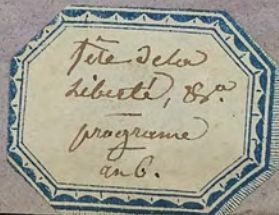 fête de la
Liberté, &a.
programe
an 6.